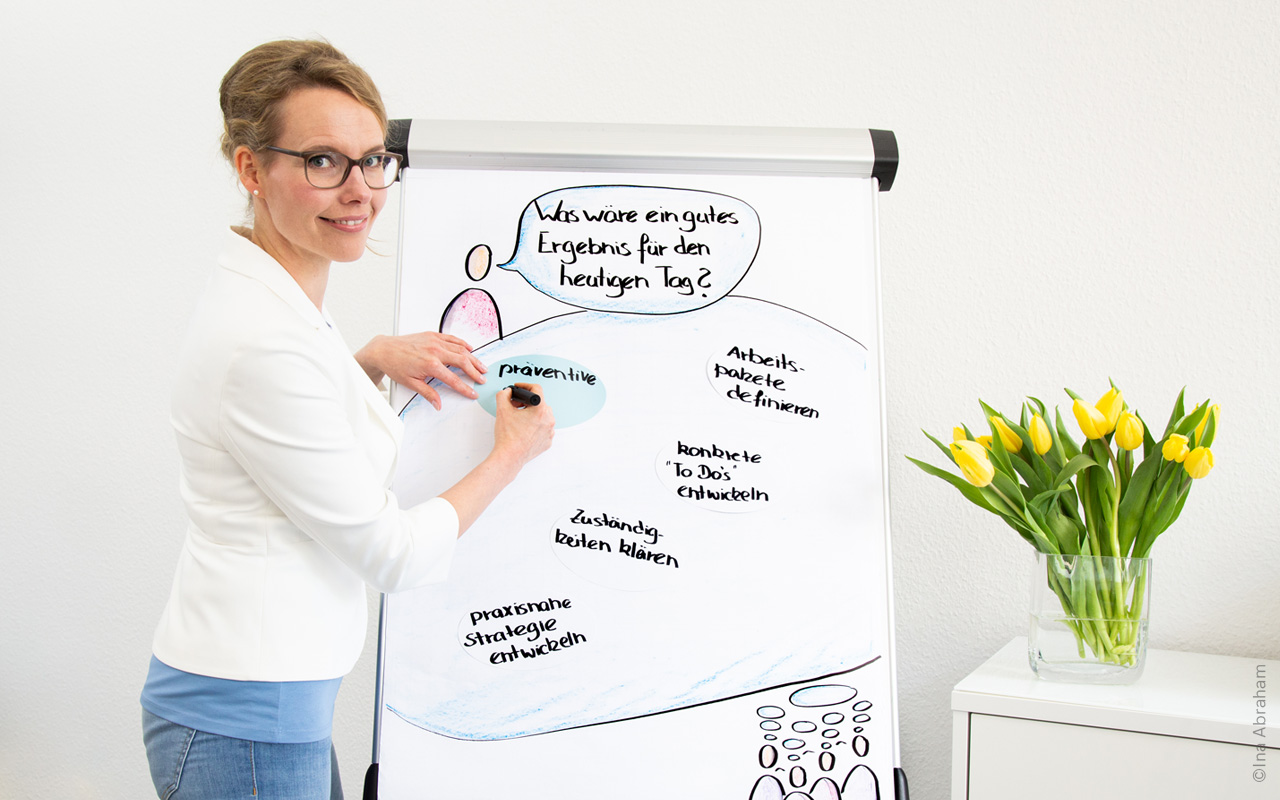 Was wäre ein gutes
Ergebnis für den
heutigen Tag?
präventive
Arbeits-
pakete
definieren
konkrete
"To Do's"
entwickeln
Zuständig-
keiten klären
praxisnahe
strategie
entwickeln
©Ina Abraham